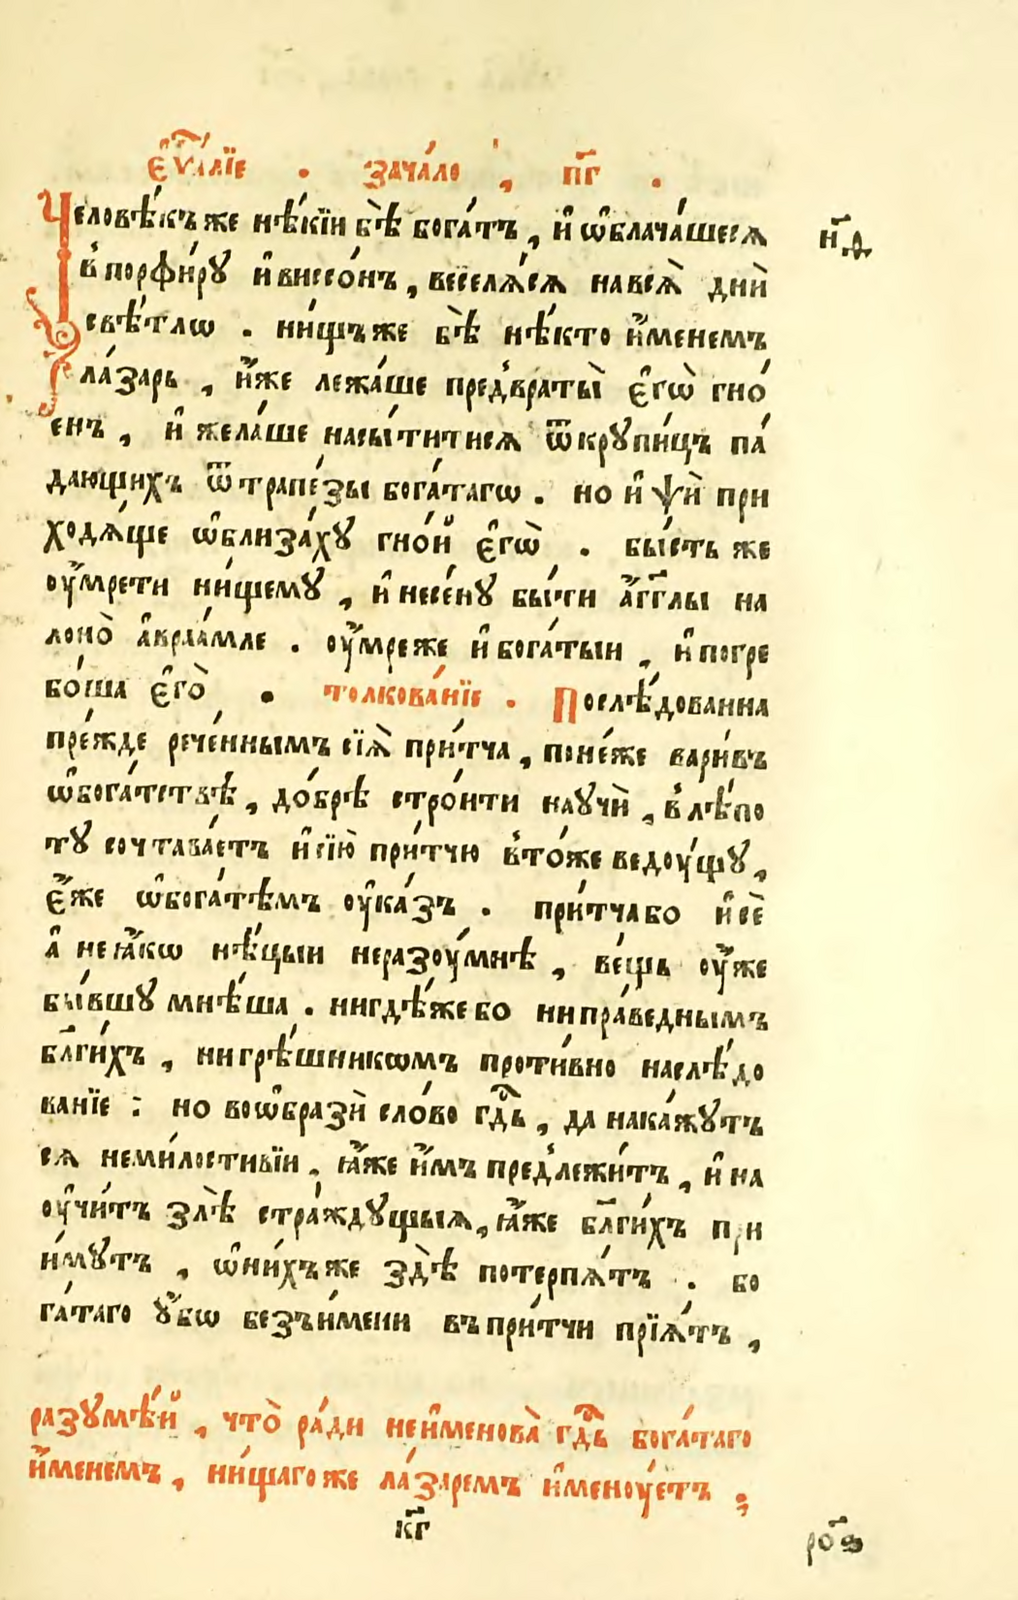 є҆ѵⷢ҇лїе . зача́ло , п҃г .
Человѣ́къ же нѣ́кїи бѣ̀ бога́тъ , и҆ ѡ҆блача́шеся
в̾ порфи́ру и҆ виссо́нъ , веселѧ́сѧ на всѧ̀ днѝ
свѣ́тлѡ . ни́щъ же бѣ̀ нѣ́кто и҆́менемъ
ла́зарь , и҆́же лежа́ше пред̾враты̀ є҆гѡ̀ гно́
енъ , и҆ жела́ше насы́титисѧ ѿ крупи́цъ па́
дающихъ ѿ трапе́зы бога́тагѡ . но и҆ ѱѝ при
ходѧ́ще ѡ҆близа́хꙋ гно́й є҆гѡ̀ . бы́сть же
оу҆мре́ти ни́щемꙋ , и҆ несе́нꙋ бы́ти а҆́гг҃лы на
лоно̀ а҆враа́мле . оу҆́мре же и҆ бога́тыи , и҆ погре
бо́ша є҆го̀ . толкова́нїе . Послѣ́дованна
пре́жде рече́ннымъ сїѧ̀ при́тча , поне́же вари́въ
ѡ҆ бога́тствѣ , до́брѣ стро́ити наꙋчѝ , в̾ лѣ́по
тꙋ сочтава́етъ и҆ сїю̀ при́тчю в̾то́же ведоу́щꙋ ,
є҆́же ѡ҆ бога́тѣмъ оу҆ка́зъ . при́тча бо и҆ сѐ
а҆ не ꙗ҆́кѡ нѣ́цыи неразоу́мнѣ , ве́щь оу҆́же
бы́вшꙋ мнѣ́ша . нигдѣ́же бо ни пра́веднымъ
бл҃ги́хъ , ни грѣ́шникѡмъ проти́вно наслѣ́до
ванїе : но воѡ҆бразѝ сло́во гдⷭ҇ь , да нака́жꙋтъ
сѧ неми́лостивїи , ꙗ҆́же и҆́мъ пред̾лежи́тъ , и҆ на
оу҆чи́тъ злѣ̀ стра́ждꙋщыѧ , ꙗ҆́же бл҃ги́хъ при
и́мꙋтъ , ѡ҆ ни́хъ же здѣ̀ потерпѧ́тъ . бо
га́таго ᲂу҆́бѡ безъ и́мени въ при́тчи прїѧ́тъ ,
разꙋмѣ́й , что̀ ра́ди не и҆менова̀ гдⷭ҇ь бога́таго
и҆́менемъ , ни́щаго же ла́заремъ и҆менꙋ́етъ ;
н҃д
к҃г
ро҃ѕ